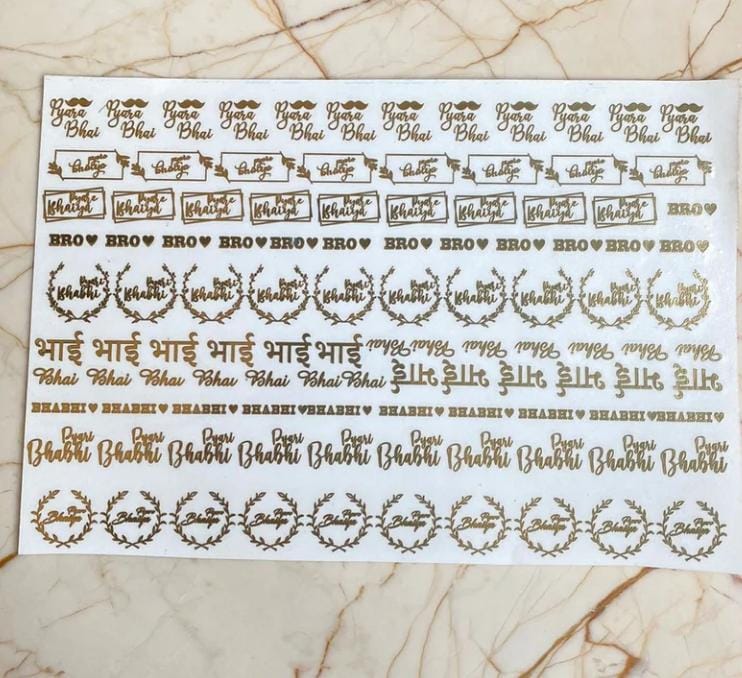 Pyara Pyara Pyara Pyara Pyara Pyara Pyara Pyara Pyara Pyara Pyara Pyara
Bhai Bhai Bhai Bhai Bhai Bhai Bhai Bhai Bhai Bhai Bhai Bhai
Pyare Pyare Pyare Pyare Pyare Pyare Pyare Pyare Pyare
Bhaiya Bhaiya Bhaiya Bhaiya Bhaiya Bhaiya Bhaiya Bhaiya Bhaiya BRO♥
BRO♥ BRO♥ BRO♥ BRO♥ BRO♥ BRO♥ BRO♥ BRO♥ BRO♥ BRO♥ BRO♥ BRO♥
Pyari Pyari Pyari Pyari Pyari Pyari Pyari Pyari Pyari Pyari
Bhabhi Bhabhi Bhabhi Bhabhi Bhabhi Bhabhi Bhabhi Bhabhi Bhabhi Bhabhi
भाई भाई भाई भाई भाई भाई Bhai Bhai Bhai Bhai Bhai Bhai
Bhai Bhai Bhai Bhai Bhai Bhai Bhai भाई भाई भाई भाई भाई भाई
BHABHI♥ BHABHI♥ BHABHI♥ BHABHI♥ BHABHI♥ BHABHI♥ BHABHI♥ BHABHI♥ BHABHI♥ BHABHI♥
Pyari Pyari Pyari Pyari Pyari Pyari Pyari Pyari Pyari Pyari
Bhabhi Bhabhi Bhabhi Bhabhi Bhabhi Bhabhi Bhabhi Bhabhi Bhabhi Bhabhi
Bhaiya Bhaiya Bhaiya Bhaiya Bhaiya Bhaiya Bhaiya Bhaiya Bhaiya Bhaiya